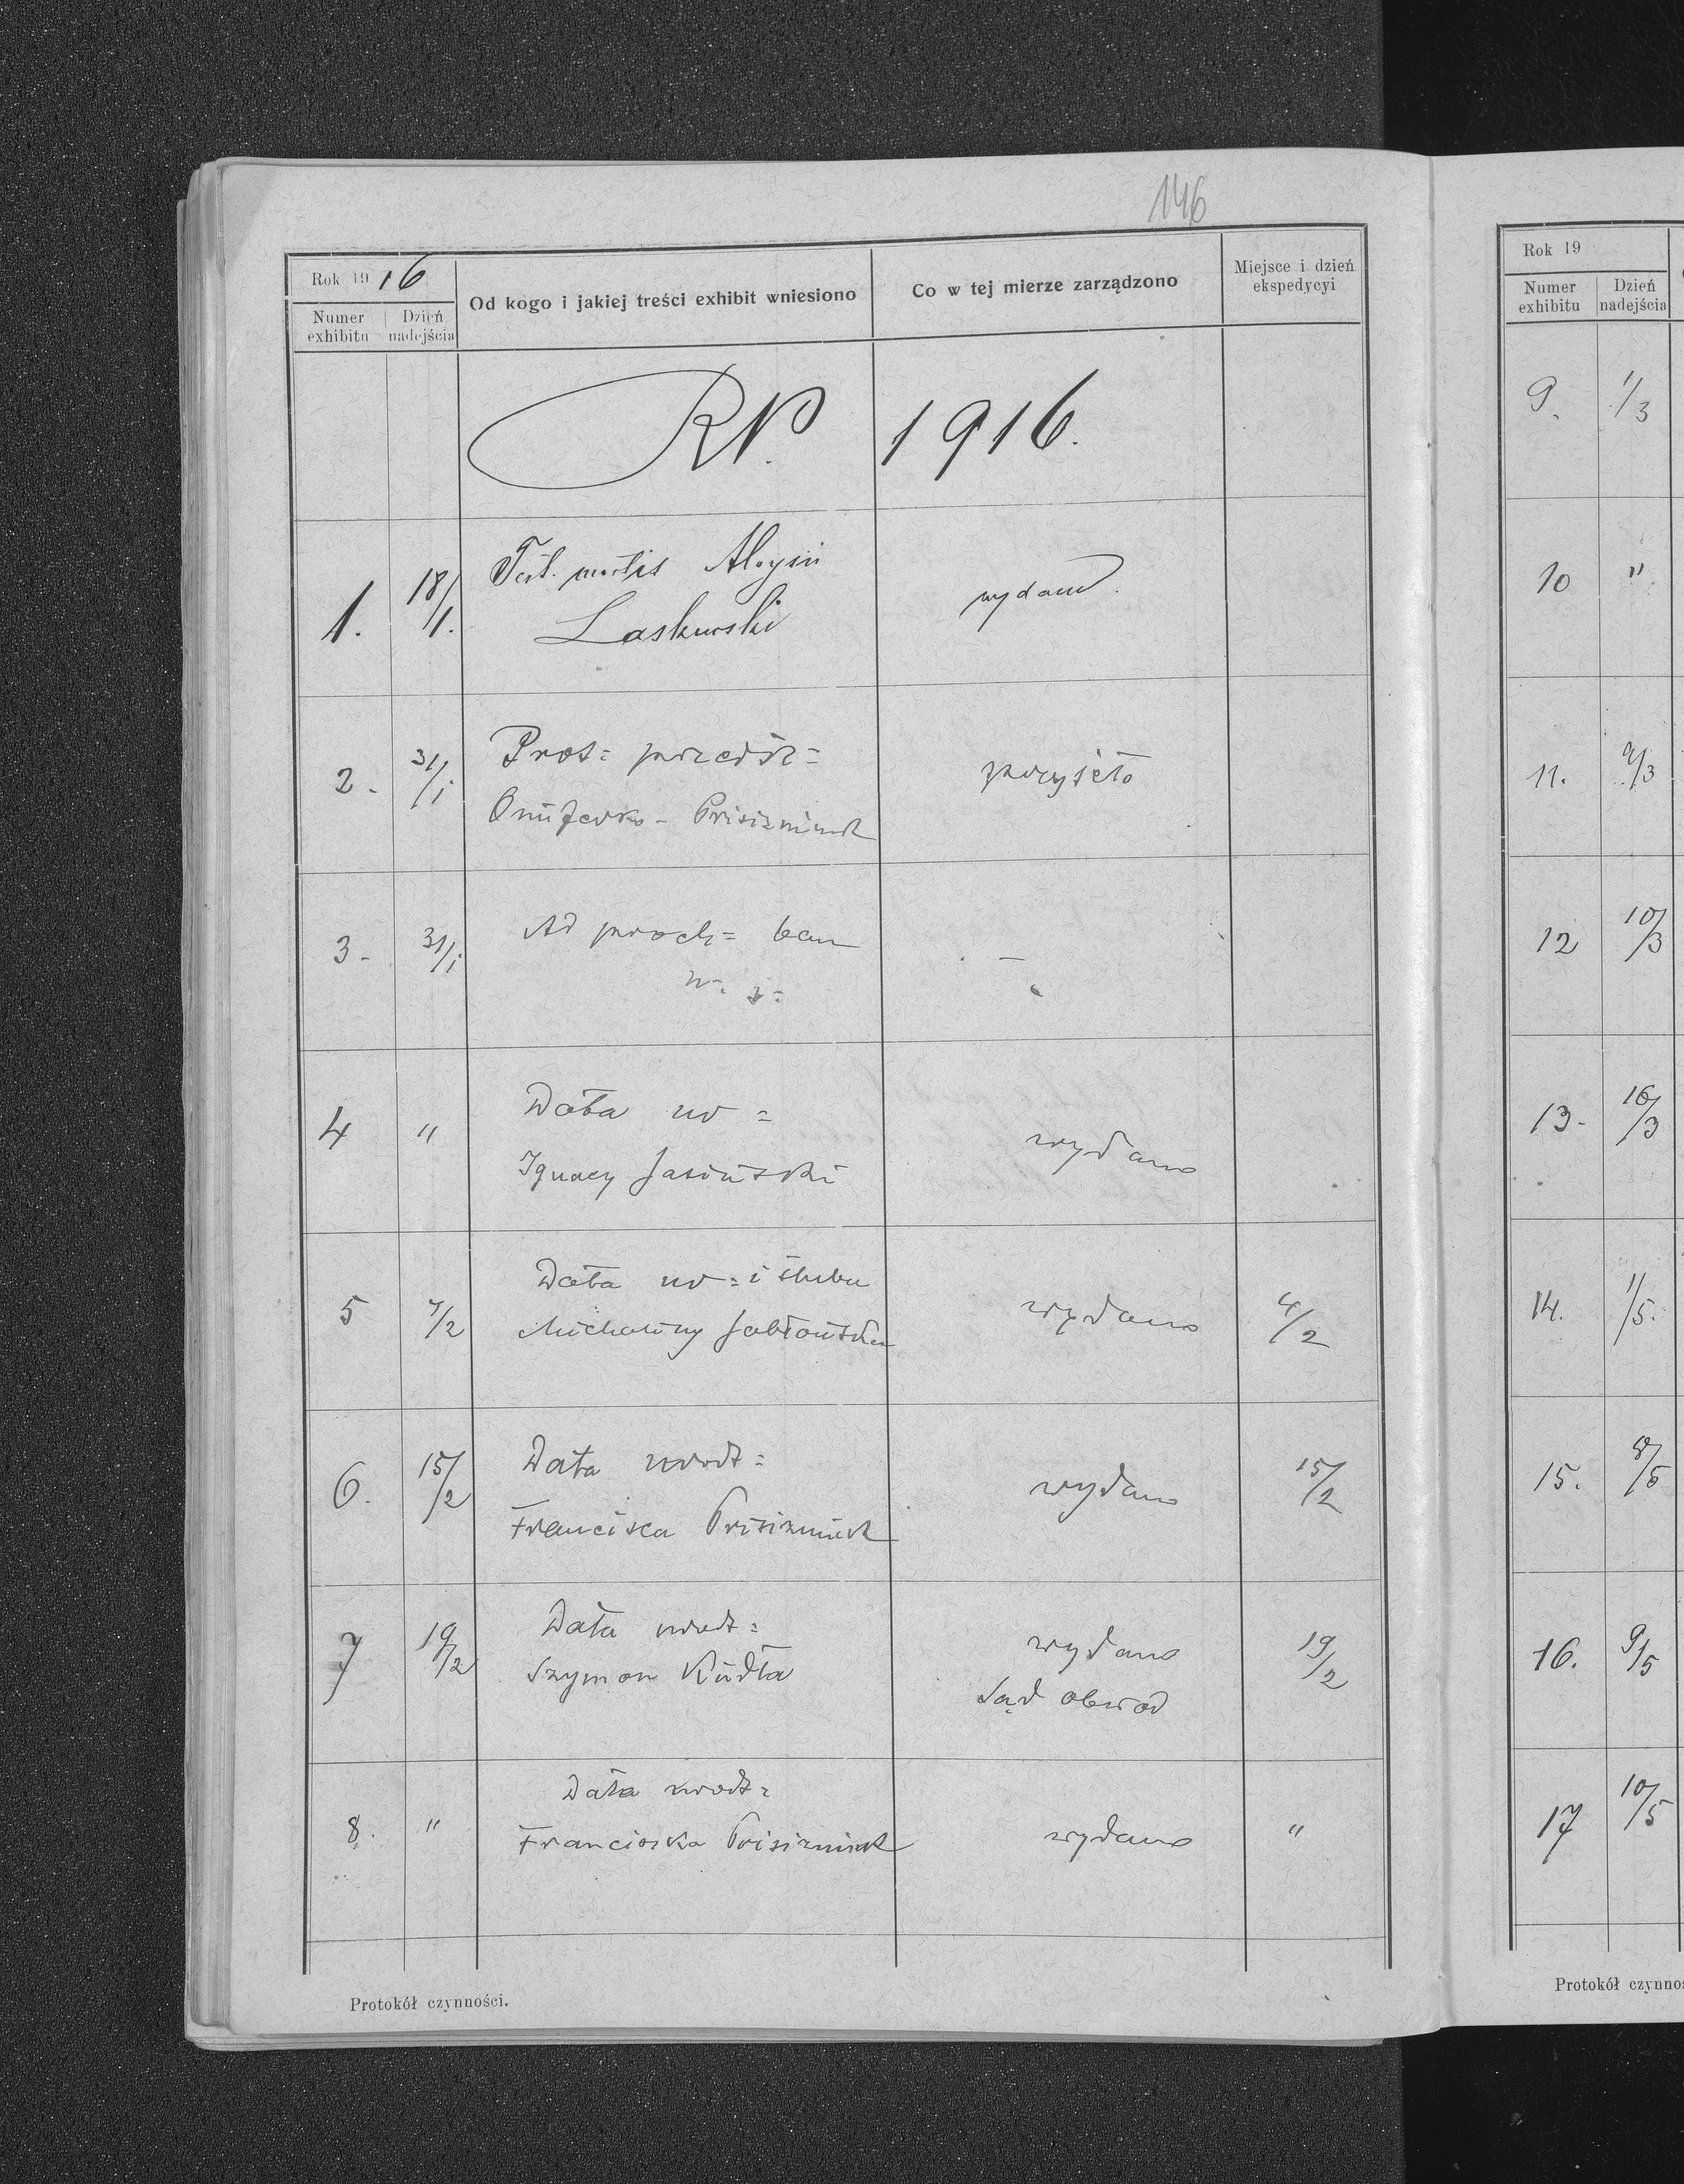 146
Rok 1916
Numer exhibitu
Dzień nadejścia
Od kogo i jakiej treści exhibit wniesiono
Co w tej mierze zarządzono
Miejsce i dzień ekspedycyi
RP. 1916.
1. 18/1. Test. mortis Aloysii wydano.
Laskowski
2. 31/1 Prot: przedśl: przyjęto
Prisiżniuk
3. 31/1 Ad
4 " Data ur= wydano
Ignacy Jasiński
5 4/2 Data ur= i ślubu wydano 4/2
Michaliny Jabłońska
6. 15/2 Data urodz= wydano 15/2
Franciska Prisiżniuk
7 19/2 Data urodz= wydano 19/2
Szymon Kudła Sąd obwod
8. " Data urodz= wydano "
Franciszka Prisiżniuk
Protokół czynności.
Rok 19
Numer exhibitu
Dzień nadejścia
9. 1/3
10 "
11. 9/3
12 10/3
13- 16/3
14. 1/5.
15. 8/5
16. 9/5
17 10/5
Protokół czynnoś